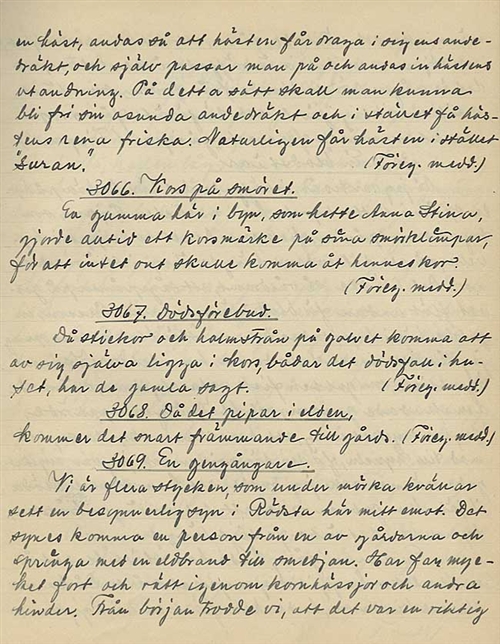 en häst, andas så att hästen får draga i sig ens ande-
dräkt, och själv passar man på och andas in hästens
utandning. På detta sätt skall man kunna
bli fri sin osunda andedräkt och i stället få häs-
tens rena friska. Naturligen får hästen i stället
"suran." (Föreg. medd.)
3066. Kors på smöret.
En gumma här i byn, som hette Anna Stina,
gjorde alltid ett korsmärke på sina smörklimpar,
för att intet ont skulle komma åt hennes kor.
(Föreg. medd.)
3067. Dödsförebud.
Då stickor och halmstrån på golvet komma att
av sig själva ligga i kors, bådar det dödsfall i hu-
set, har de gamla sagt. (Föreg. medd.)
3068. Då det pipar i elden,
kommer det snart främmande till gårds. (Föreg. medd.)
3069. En gengångare.
Vi är flera stycken, som under mörka kvällar
sett en besynnerlig syn i Rödsta här mitt emot. Det
synes komma en person från en av gårdarna och
springa med en eldbrand till smedjan. Har far myc-
ket fort och rätt igenom kornhässjor och andra
hinder. Från början trodde vi, att det var en riktig